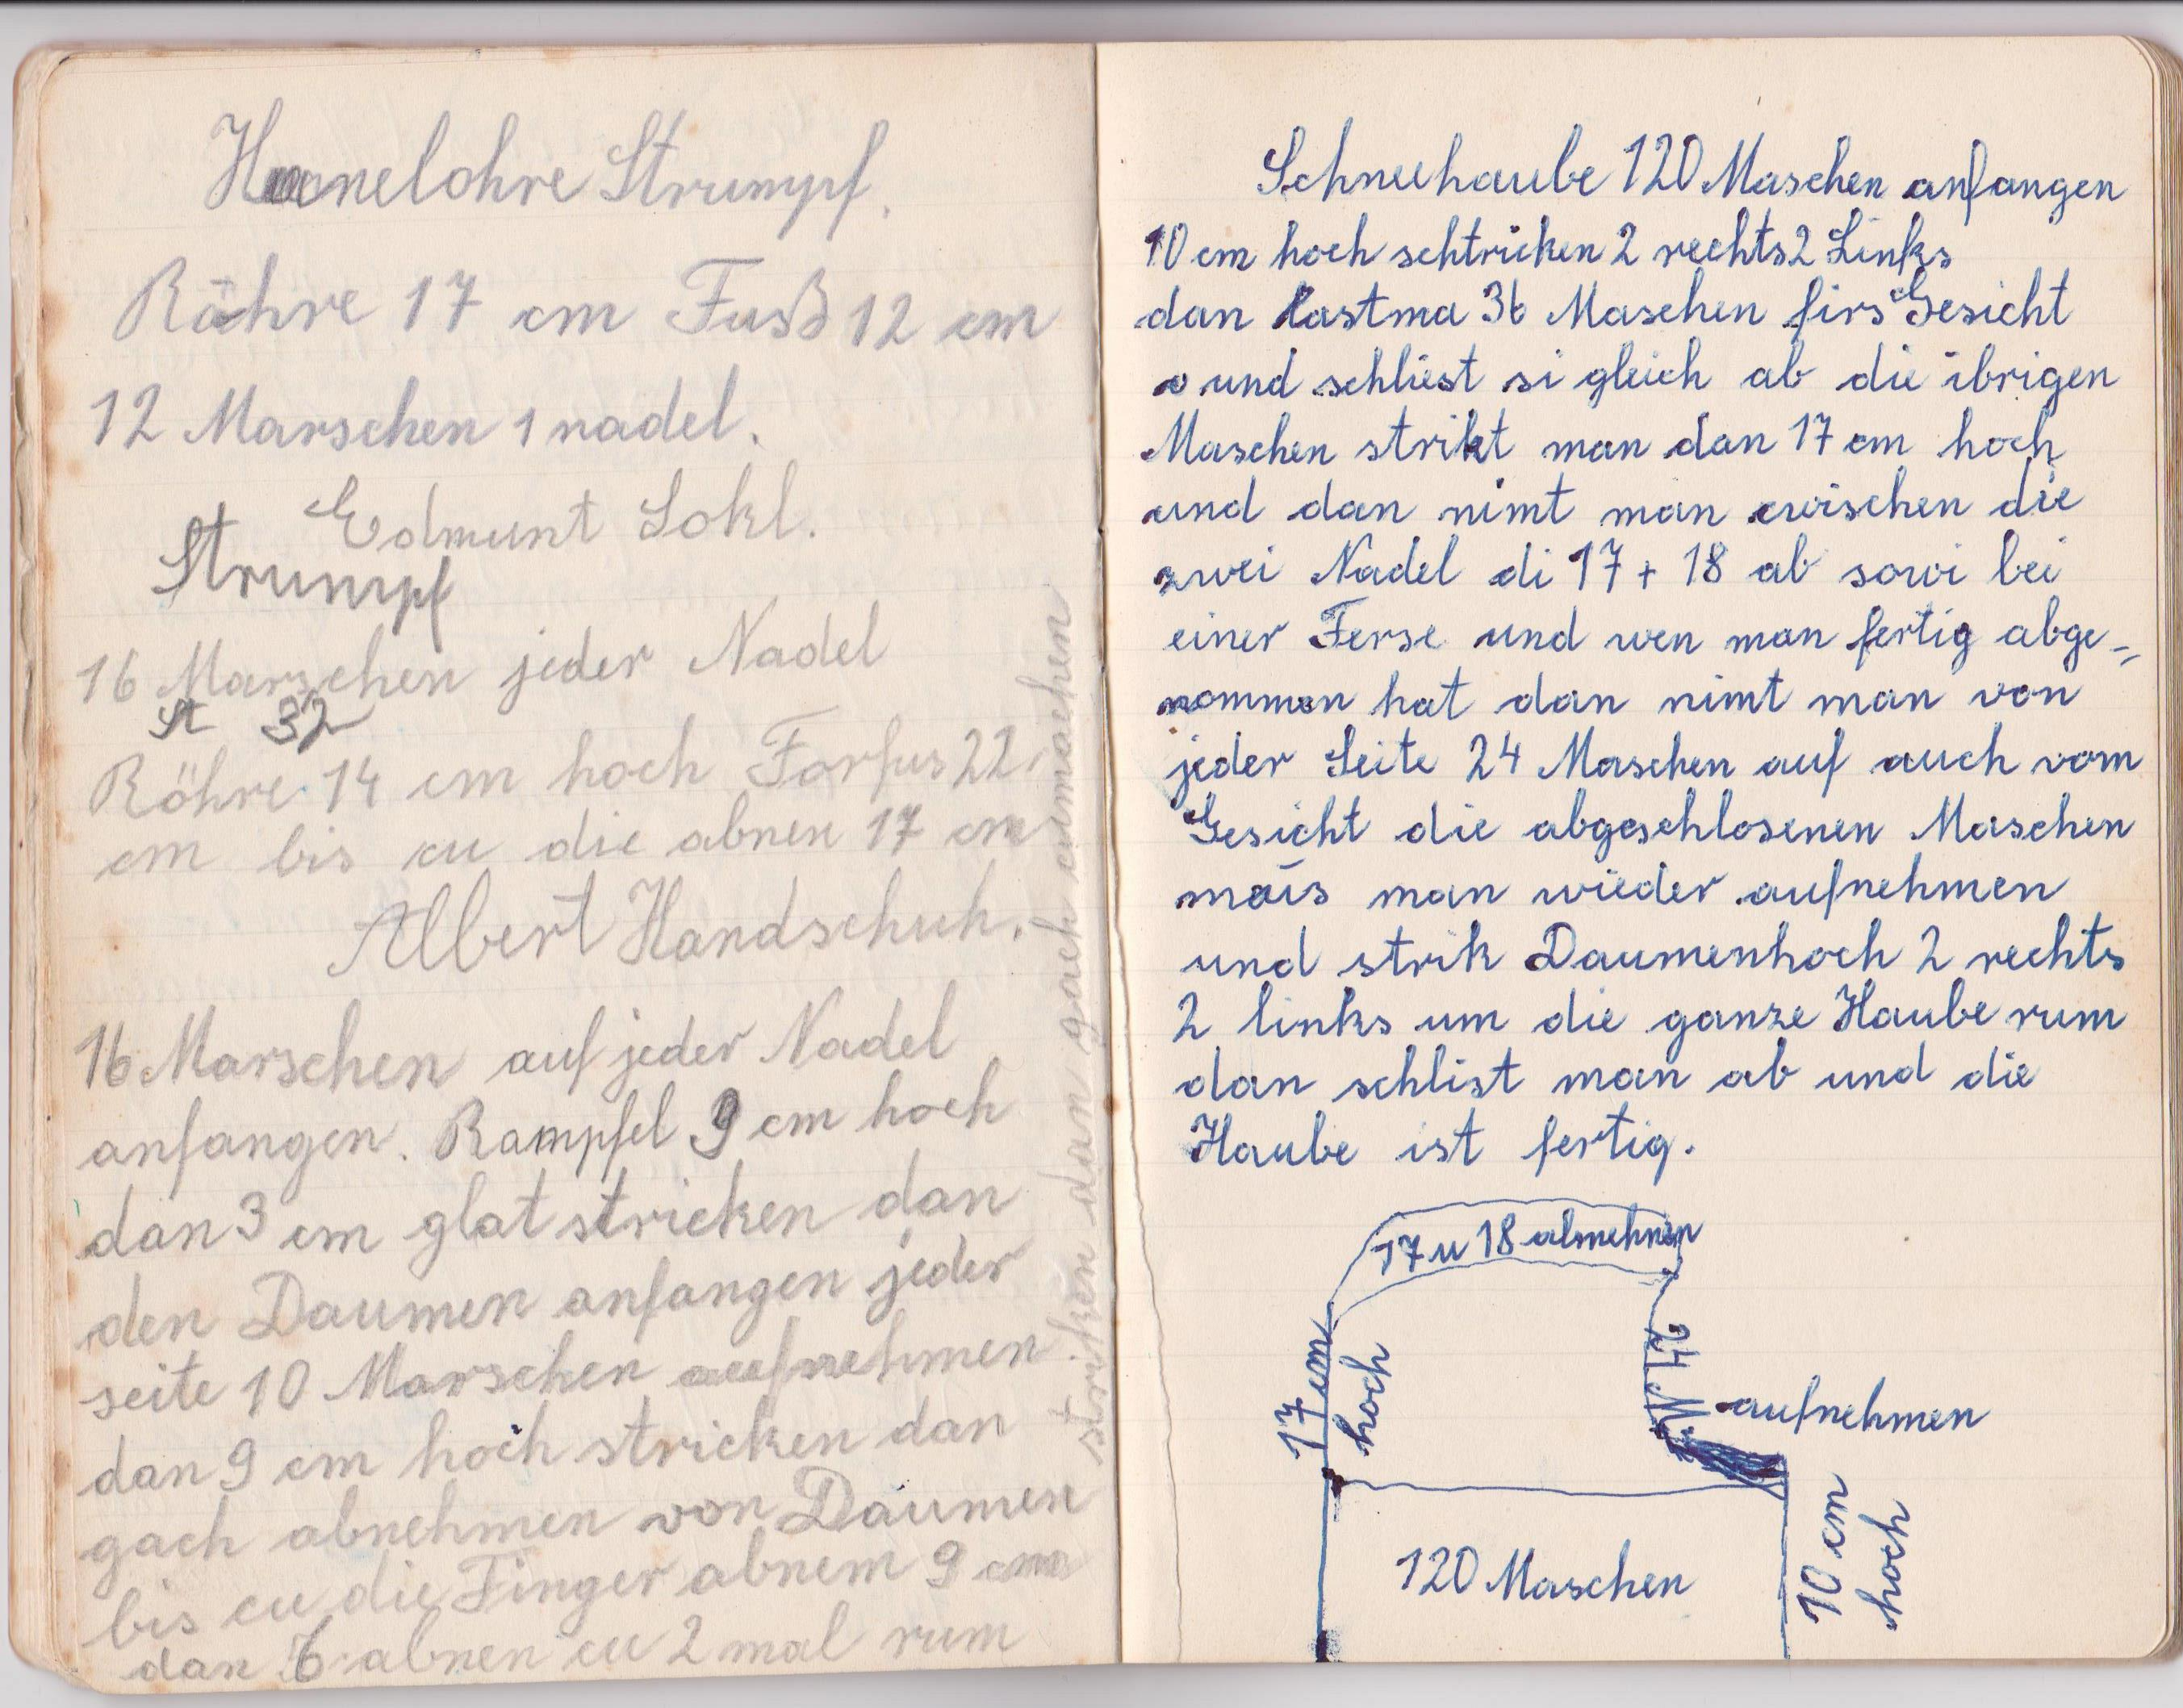 Hanelohre Strumpf.
Röhre 17 cm Fuß 12 cm
12 Marschen 1 nadel.
Edmunt Sokl.
Strumpf
16 Marschen jeder Nadel
St 32
Röhre 14 cm hoch Forfus 22
cm bis cu die abnen 17 cm
Albert Handschuh.
16 Marschen auf jeder Nadel
anfangen. Rampfel 9 cm hoch
dan 3 cm glat stricken dan
den Daumen anfangen jeder
seite 10 Marschen aufnehmen
dan 9 cm hoch stricken dan
gach abnehmen von Daumen
bis cu die Finger abnem 9 cm
dan 6 abnen cu 2 mal rum
striken dan gach cumachen
Schneehaube 120 Maschen anfangen
10 cm hoch schtricken 2 rechts 2 Links
dan lastma 36 Maschen firs Gesicht
und schliest si gleich ab die ibrigen
Maschen strikt man dan 17 cm hoch
und dan nimt man cwischen die
zwei Nadel di 17 + 18 ab sowi bei
einer Ferse und wen man fertig abge-
nommen hat dan nimt man von
jeder Seite 24 Maschen auf auch vom
Gesicht die abgeschlosenen Maschen
mus man wieder aufnehmen
und strik Daumenhoch 2 rechts
2 links um die ganze Haube rum
dan schlist man ab und die
Haube ist fertig.
17 u 18 abnehmen
17 cm
hoch
24 M.
aufnehmen
120 Maschen
10 cm
hoch